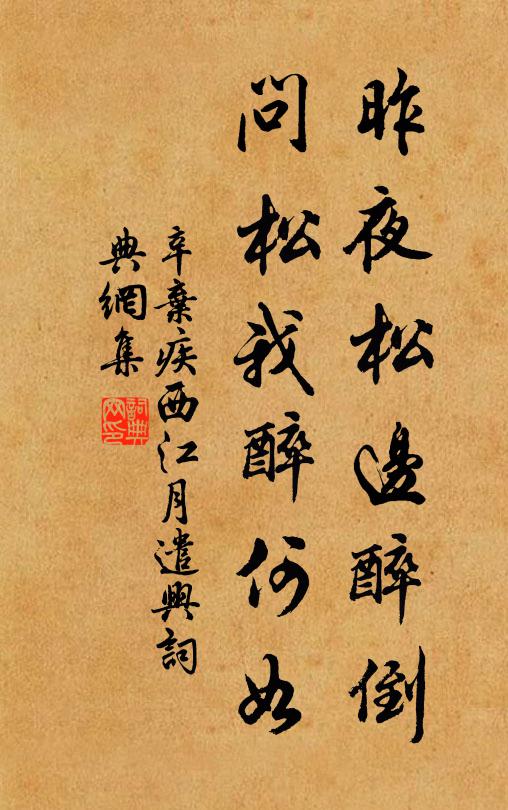 昨夜松邊醉倒
問松我醉何如
辛棄疾西江月遣興詞
典網集
詞典网印